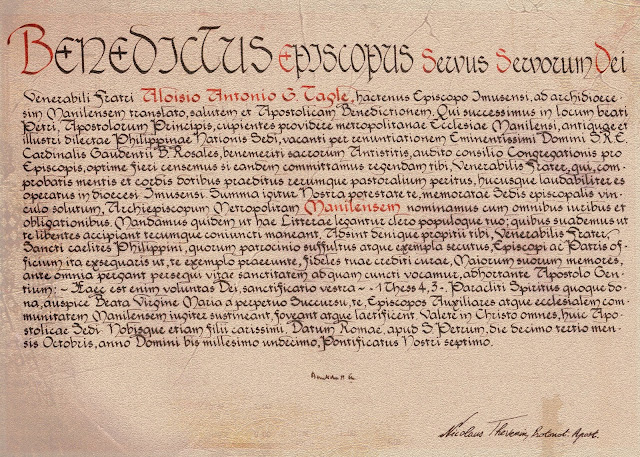 Benedictus Episcopus Servus Servorum Dei
Venerabili Fratri Aloisio Antonio G. Tagle, hactenus Episcopo Imusensi, ad archidioece-
sim Manilensem translato, salutem et Apostolicam Benedictionem. Qui successimus in locum beati
Petri, Apostolorum Principis, cupientes providere metropolitanae Ecclesiae Manilensi, antiquae et
illustri dilectae Philippinae Nationis Sedi, vacanti per renuntiationem Eminentissimi Domini S.R.E.
Cardinalis Gaudentii B. Rosales, benemeriti sacrorum Antistitis, audito consilio Congregationis pro
Episcopis, optime fieri censemus si eandem committamus regendam tibi, Venerabilis Frater, qui, com-
probatis mentis et cordis dotibus praeditus rerumque pastoralium peritus, hucusque laudabiliter es
operatus in dioecesi Imusensi. Summa igitur Nostra potestate te, memoratae Sedis episcopalis vin-
culo solutum, Archiepiscopum Metropolitam Manilensem nominamus cum omnibus iuribus et
obligationibus. Mandamus quidem ut hae Litterae legantur clero populoque tuo; quibus suademus ut
te libentes accipiant tecumque coniuncti maneant. Adsint denique propitii tibi, Venerabilis Frater,
Sancti caelites Philippini, quorum patrocinio suffultus atque exempla secutus, Episcopi ac Patris of-
ficium ita exsequaris ut, te exemplo praeeunte, fideles tuae crediti curae, Maiorum suorum memores,
ante omnia pergant persequi vitae sanctitatem ad quam cuncti vocamur, adhortante Apostolo Gen-
tium: ~ Haec est enim voluntas Dei, sanctificatio vestra ~ 1 Thess 4, 3 -. Paracliti Spiritus quoque do-
na, auspice Beata Virgine Maria a perpetuo Succursu, te, Episcopos Auxiliares atque ecclesialem com-
munitatem Manilensem iugiter sustineant, foveant atque laetificent. Valete in Christo omnes, huic Apo-
stolicae Sedi Nobisque etiam filii carissimi. Datum Romae, apud S. Petrum, die decimo tertio men-
sis Octobris, anno Domini bis millesimo undecimo, Pontificatus Nostri septimo.
Nicolaus Thevenin, Protonot. Apost.